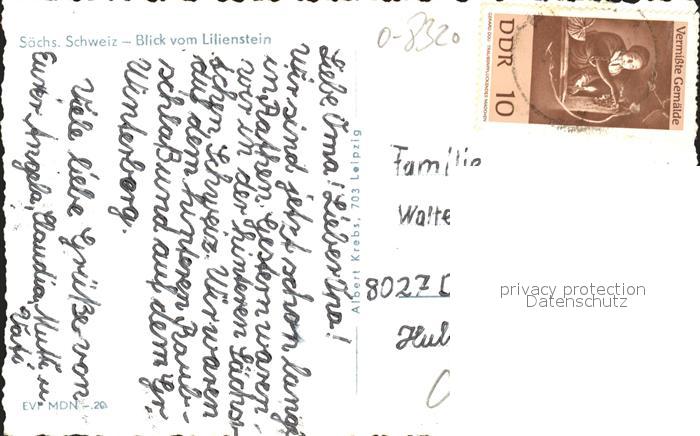 Sächs. Schweiz – Blick vom Lilienstein
0-8320
Vermißte Gemälde
DDR 10
Liebe Oma! Lieber Opa!
Wir sind jetzt schon lange
in Rathen. Gestern waren
wir in der hinteren Sächsi-
schen Schweiz. Wir waren
auf dem hinteren Raub-
schloß und auf dem Gr.
Winterberg.
Viele liebe Grüße von
Eurer Angela, Claudia, Mutti u.
Vati
EVP MDN –.20
Albert Krebs, 703 Leipzig
Familie
Walte
8027 D
privacy protection
Datenschutz